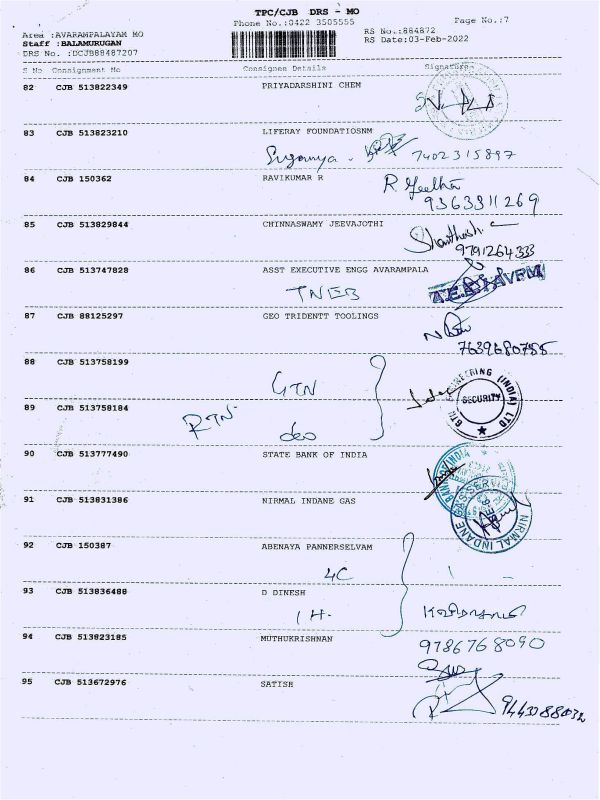 TPC/CJB DRS - MO
Phone No.:0422 3505555
Page No.:7
Area :AVARAMPALAYAM MO
Staff :BALAMURUGAN
DRS No. :DCJB88487207
RS No.:884872
RS Date:03-Feb-2022
S No Consignment No Consignee Details Signature
82 CJB 513822349 PRIYADARSHINI CHEM
83 CJB 513823210 LIFERAY FOUNDATIOSNM
Suganya. 7402315897
84 CJB 150362 RAVIKUMAR R
R. Geetha
9363811269
85 CJB 513829844 CHINNASWAMY JEEVAJOTHI
Shanthosh. C
9791264333
86 CJB 513747828 ASST EXECUTIVE ENGG AVARAMPALA
TNEB
87 CJB 88125297 GEO TRIDENTT TOOLINGS
7639680755
88 CJB 513758199
GTN
ENGINEERING (INDIA) LTD
SECURITY
89 CJB 513758184
RTN
deo
90 CJB 513777490 STATE BANK OF INDIA
91 CJB 513831386 NIRMAL INDANE GAS
NIRMAL INDANE GAS SERVICE
92 CJB 150387 ABENAYA PANNERSELVAM
4C
93 CJB 513836488 D DINESH
1H.
94 CJB 513823185 MUTHUKRISHNAN
9786768090
95 CJB 513672976 SATISH